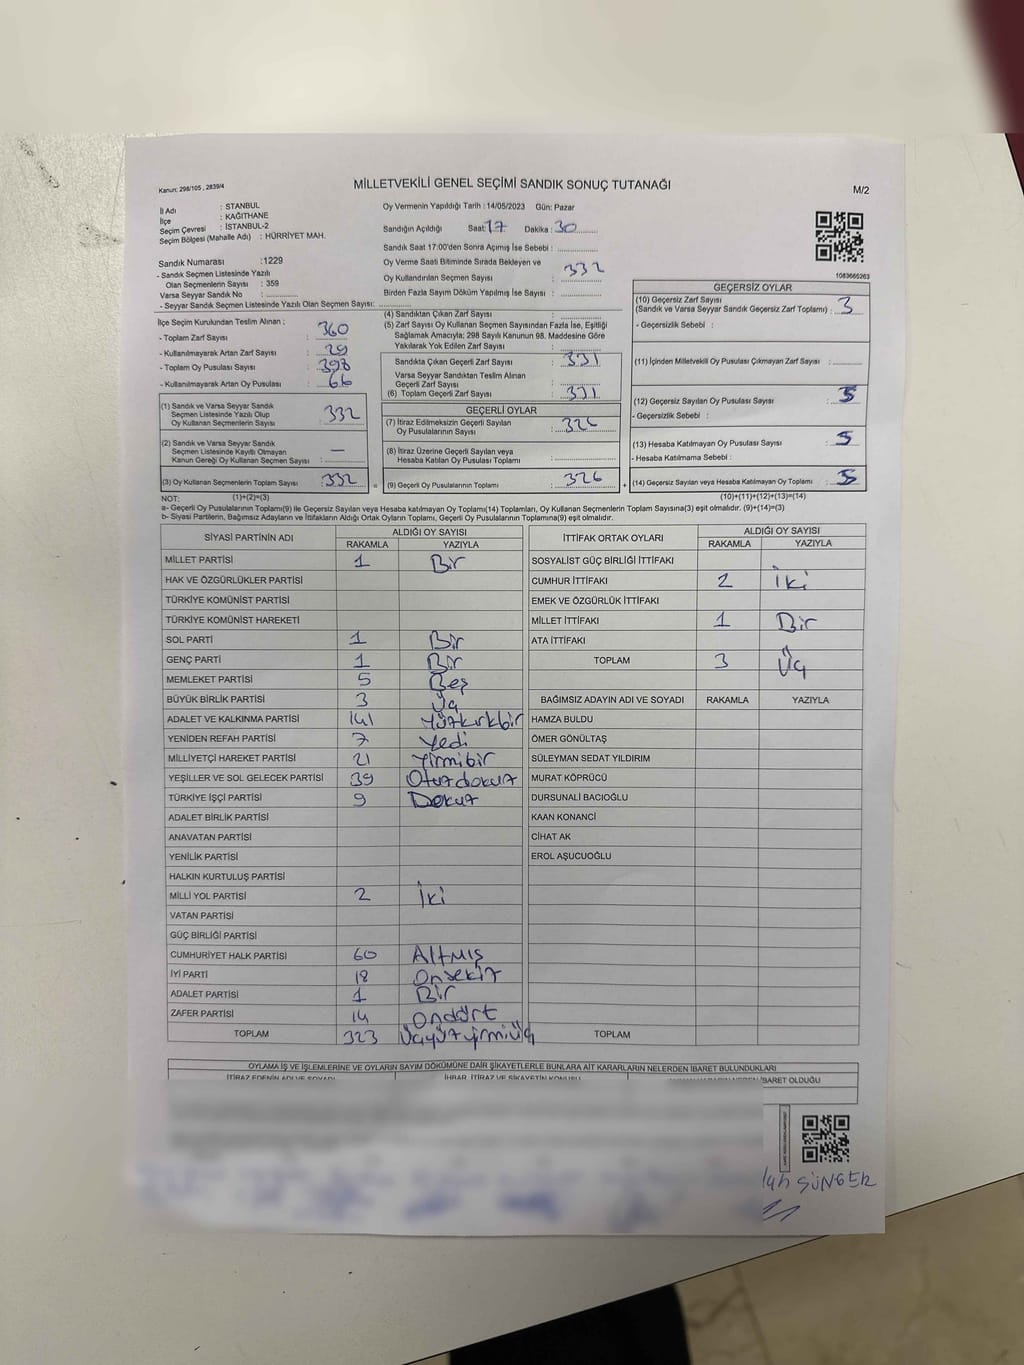 Kanun: 298/105 , 2839/4
MİLLETVEKİLİ GENEL SEÇİMİ SANDIK SONUÇ TUTANAĞI
M/2
İl Adı : STANBUL
İlçe : KAĞITHANE
Seçim Çevresi : İSTANBUL-2
Seçim Bölgesi (Mahalle Adı) : HÜRRİYET MAH.
Sandık Numarası :1229
- Sandık Seçmen Listesinde Yazılı
Olan Seçmenlerin Sayısı : 359
Varsa Seyyar Sandık No :
- Seyyar Sandık Seçmen Listesinde Yazılı Olan Seçmen Sayısı:
Oy Vermenin Yapıldığı Tarih : 14/05/2023 Gün: Pazar
Sandığın Açıldığı Saat: 17 Dakika : 30
Sandık Saat 17:00'den Sonra Açımış İse Sebebi :
Oy Verme Saati Bitiminde Sırada Bekleyen ve
Oy Kullandırılan Seçmen Sayısı : 332
Birden Fazla Sayım Döküm Yapılmış İse Sayısı :
1083665263
İlçe Seçim Kurulundan Teslim Alınan :
- Toplam Zarf Sayısı : 360
- Kullanılmayarak Artan Zarf Sayısı : 29
- Toplam Oy Pusulası Sayısı : 398
- Kullanılmayarak Artan Oy Pusulası : 66
(1) Sandık ve Varsa Seyyar Sandık
Seçmen Listesinde Yazılı Olup
Oy Kullanan Seçmenlerin Sayısı : 332
(2) Sandık ve Varsa Seyyar Sandık
Seçmen Listesinde Kayıtlı Olmayan
Kanun Gereği Oy Kullanan Seçmen Sayısı : —
(3) Oy Kullanan Seçmenlerin Toplam Sayısı : 332 =
(4) Sandıktan Çıkan Zarf Sayısı :
(5) Zarf Sayısı Oy Kullanan Seçmen Sayısından Fazla İse, Eşitliği
Sağlamak Amacıyla; 298 Sayılı Kanunun 98. Maddesine Göre
Yakılarak Yok Edilen Zarf Sayısı :
Sandıkta Çıkan Geçerli Zarf Sayısı : 331
Varsa Seyyar Sandıktan Teslim Alınan
Geçerli Zarf Sayısı :
(6) Toplam Geçerli Zarf Sayısı : 331
GEÇERLİ OYLAR
(7) İtiraz Edilmeksizin Geçerli Sayılan
Oy Pusulalarının Sayısı : 326
(8) İtiraz Üzerine Geçerli Sayılan veya
Hesaba Katılan Oy Pusulası Toplamı :
(9) Geçerli Oy Pusulalarının Toplamı : 326 +
GEÇERSİZ OYLAR
(10) Geçersiz Zarf Sayısı
(Sandık ve Varsa Seyyar Sandık Geçersiz Zarf Toplamı) : 3
- Geçersizlik Sebebi :
(11) İçinden Milletvekili Oy Pusulası Çıkmayan Zarf Sayısı :
(12) Geçersiz Sayılan Oy Pusulası Sayısı : 5
- Geçersizlik Sebebi :
(13) Hesaba Katılmayan Oy Pusulası Sayısı : 5
- Hesaba Katılmama Sebebi :
(14) Geçersiz Sayılan veya Hesaba Katılmayan Oy Toplamı : 5
NOT: (1)+(2)=(3) (10)+(11)+(12)+(13)=(14)
a- Geçerli Oy Pusulalarının Toplamı(9) ile Geçersiz Sayılan veya Hesaba katılmayan Oy Toplamı(14) Toplamları, Oy Kullanan Seçmenlerin Toplam Sayısına(3) eşit olmalıdır. (9)+(14)=(3)
b- Siyasi Partilerin, Bağımsız Adayların ve İttifakların Aldığı Ortak Oyların Toplamı, Geçerli Oy Pusulalarının Toplamına(9) eşit olmalıdır.
SİYASİ PARTİNİN ADI ALDIĞI OY SAYISI
RAKAMLA YAZIYLA
MİLLET PARTİSİ 1 Bir
HAK VE ÖZGÜRLÜKLER PARTİSİ
TÜRKİYE KOMÜNİST PARTİSİ
TÜRKİYE KOMÜNİST HAREKETİ
SOL PARTİ 1 Bir
GENÇ PARTİ 1 Bir
MEMLEKET PARTİSİ 5 Beş
BÜYÜK BİRLİK PARTİSİ 3 Üç
ADALET VE KALKINMA PARTİSİ 141 Yüzkırkbir
YENİDEN REFAH PARTİSİ 7 Yedi
MİLLİYETÇİ HAREKET PARTİSİ 21 Yirmibir
YEŞİLLER VE SOL GELECEK PARTİSİ 39 Otuzdokuz
TÜRKİYE İŞÇİ PARTİSİ 9 Dokuz
ADALET BİRLİK PARTİSİ
ANAVATAN PARTİSİ
YENİLİK PARTİSİ
HALKIN KURTULUŞ PARTİSİ
MİLLİ YOL PARTİSİ 2 İki
VATAN PARTİSİ
GÜÇ BİRLİĞİ PARTİSİ
CUMHURİYET HALK PARTİSİ 60 Altmış
İYİ PARTİ 18 Onsekiz
ADALET PARTİSİ 1 Bir
ZAFER PARTİSİ 14 Ondört
TOPLAM 323 Üçyüzyirmiüç
İTTİFAK ORTAK OYLARI ALDIĞI OY SAYISI
RAKAMLA YAZIYLA
SOSYALİST GÜÇ BİRLİĞİ İTTİFAKI
CUMHUR İTTİFAKI 2 İki
EMEK VE ÖZGÜRLÜK İTTİFAKI
MİLLET İTTİFAKI 1 Bir
ATA İTTİFAKI
TOPLAM 3 Üç
BAĞIMSIZ ADAYIN ADI VE SOYADI RAKAMLA YAZIYLA
HAMZA BULDU
ÖMER GÖNÜLTAŞ
SÜLEYMAN SEDAT YILDIRIM
MURAT KÖPRÜCÜ
DURSUNALİ BACIOĞLU
KAAN KONANCİ
CİHAT AK
EROL AŞUCUOĞLU
TOPLAM
OYLAMA İŞ VE İŞLEMLERİNE VE OYLARIN SAYIM DÖKÜMÜNE DAİR ŞİKAYETLERLE BUNLARA AİT KARARLARIN NELERDEN İBARET BULUNDUKLARI
İTİRAZ EDENİN ADI VE SOYADI İHBAR, İTİRAZ VE ŞİKAYETİN KONUSU İBARET OLDUĞU
SÜNGER